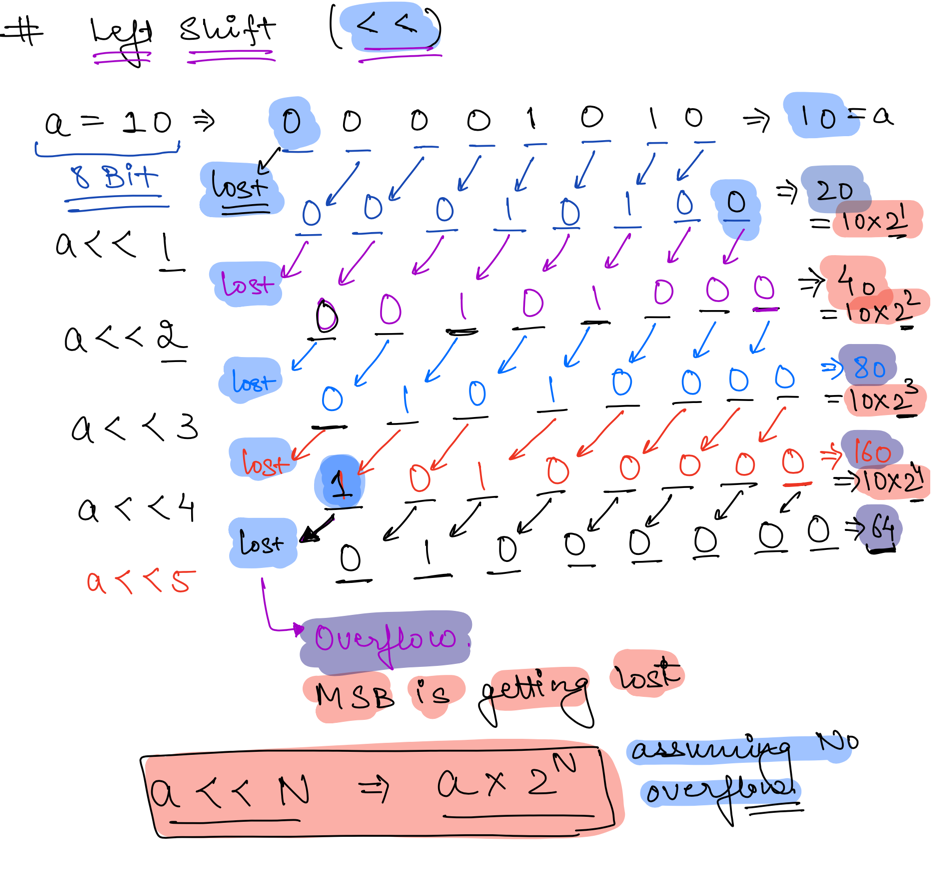 # Left Shift (<<)
a = 10 ⇒ 0 0 0 0 1 0 1 0 ⇒ 10 = a
8 Bit
lost
0 0 0 1 0 1 0 0 ⇒ 20
= 10×2¹
a << 1
lost
0 0 1 0 1 0 0 0 ⇒ 40
= 10×2²
a << 2
lost
0 1 0 1 0 0 0 0 ⇒ 80
= 10×2³
a << 3
lost
1 0 1 0 0 0 0 0 ⇒ 160
⇒ 10×2⁴
a << 4
lost
0 1 0 0 0 0 0 0 ⇒ 64
a << 5
Overflow.
MSB is getting lost
a << N ⇒ a × 2ᴺ
assuming No
overflow.